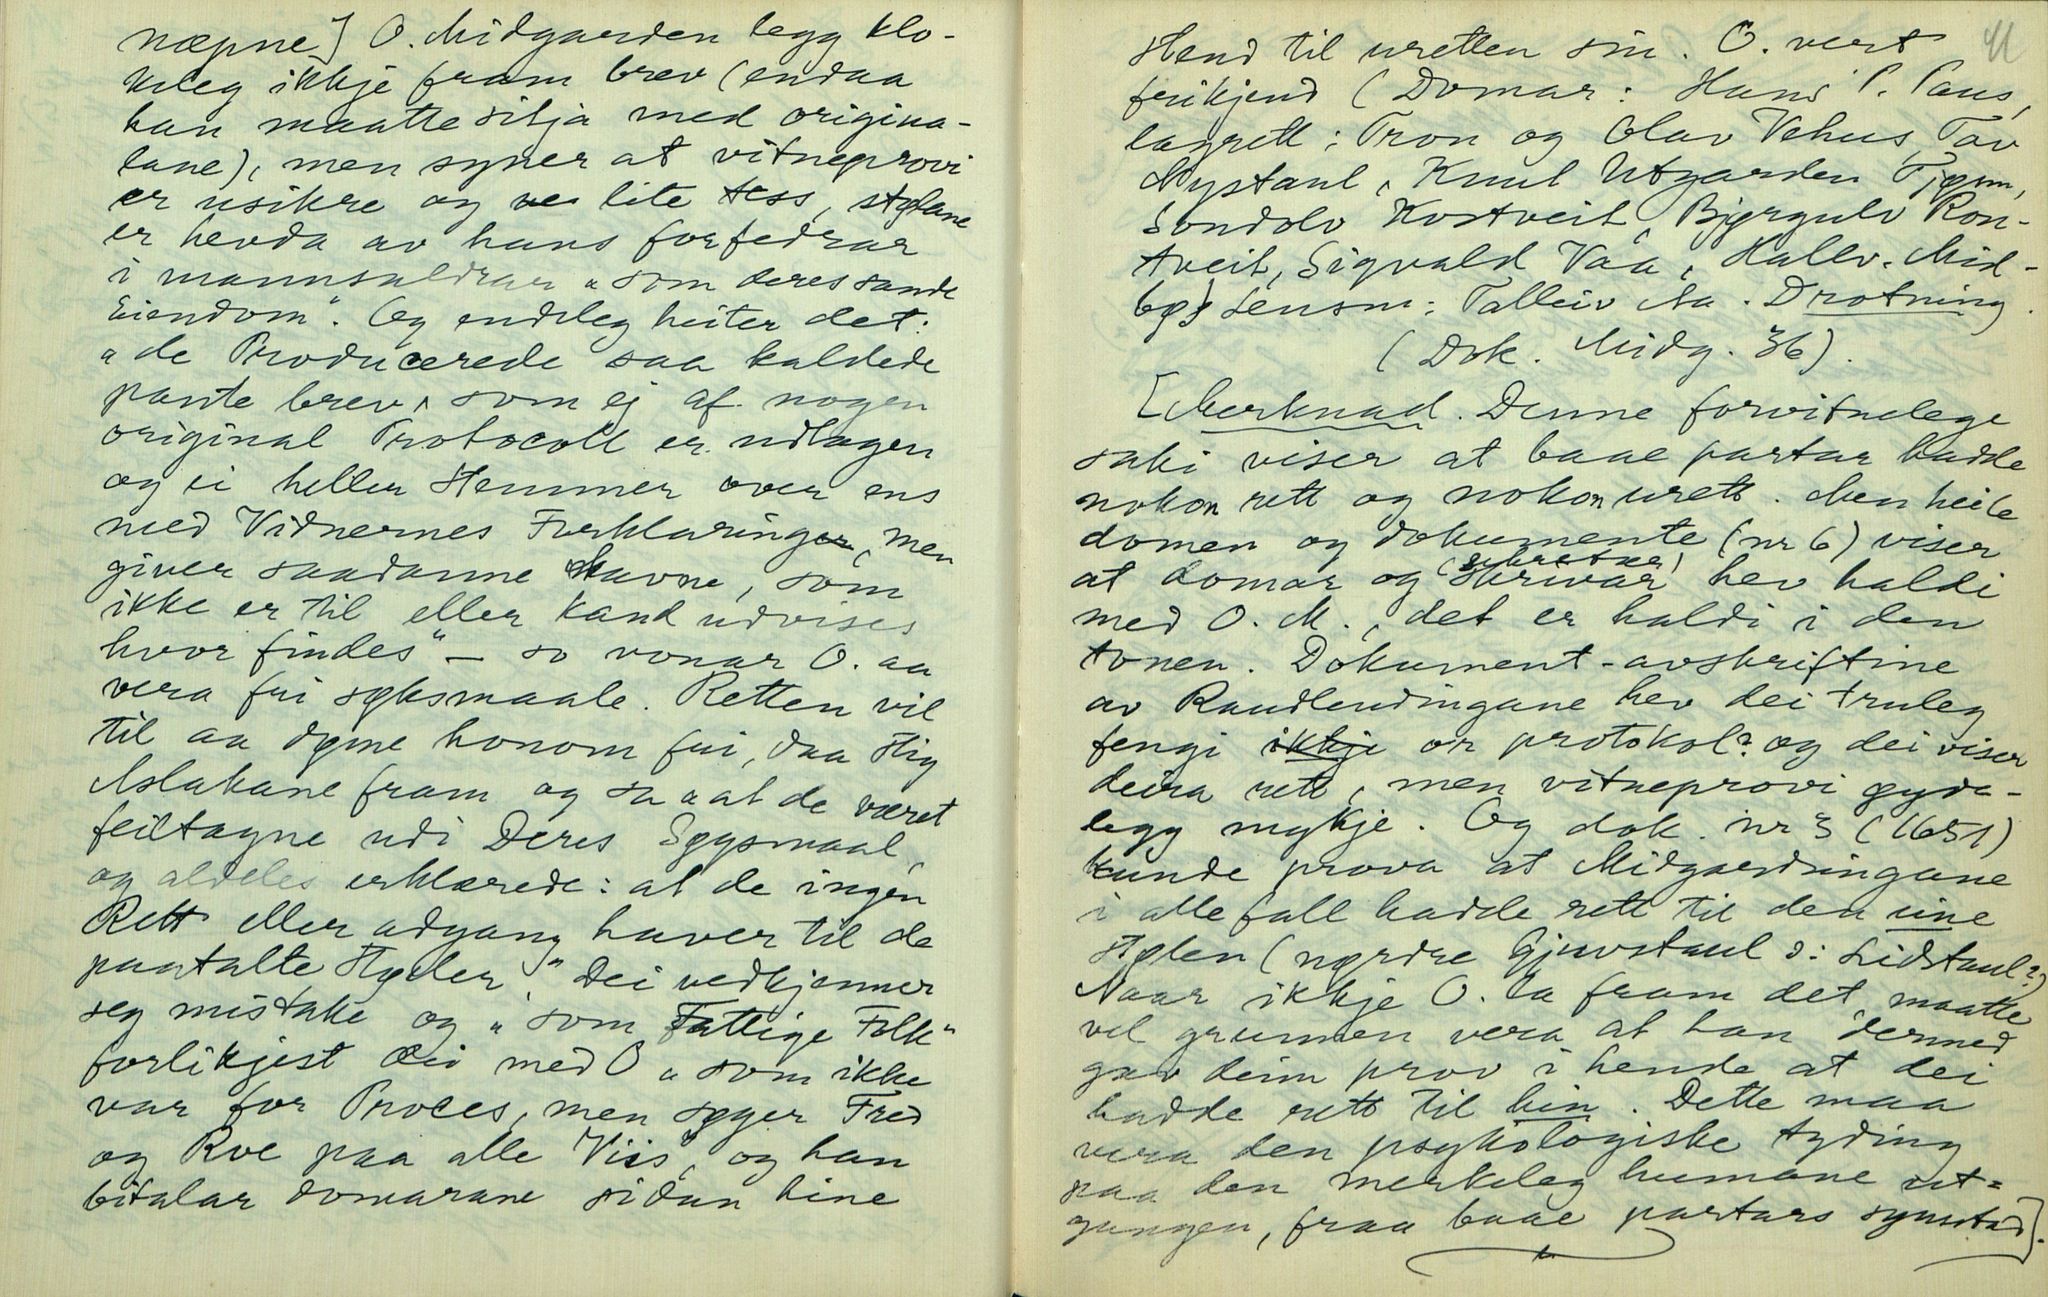 næpne] O. Midgarden legg klo-
keleg ikkje fram brev (endaa
han maatte sitja med origina-
lane), men syner at vitneprovi
er usikre og lite tess, stølane
er hevda av hans forfedrar
i mannsaldrar „som deres sande
Eiendom". Og endeleg heiter det:
„de Producerede saa kaldede
pante brev, som ej af nogen
original Protocoll er udtagen
og ei heller stemmer over ens
med Vidnernes Forklaringer, men
giver saadanne Navne, som
ikke er til eller kand udvises
hvor findes" — so vonar O. aa
vera fri søksmaale. Retten vil
til aa døme honom fri, daa stig
Aslakane fram og sa „at de været
feiltagne udi Deres Søgsmaal,
og aldeles erklærede: at de ingen
Rett eller adgang haver til de
paatalte Støler." Dei vedkjenner
seg mistake og „som Fattige Folk"
forlikjest dei med O „som ikke
var for Proces, men søger Fred
og Roe paa alle Viis", og han
bitalar domarane sidan hine
stend til uretten sin. O. vert
frikjend (Domar: Hans P. Paus,
lagrett: Tron og Olav Vehus, Tov
Nystaul, Knut Utgarden Tjønn,
Sondolv Kostveit, Bjørgulv Ron-
tveit, Sigvald Vaa, Hallv. Mid-
bø) Lensm: Talleiv Aa. Drotning.
(Dok. Midg. 36).
[Merknad. Denne forvitnelege
saki viser at baae partar hadde
nokon rett og nokon urett. Men heile
domen og dokumente (nr 6) viser
at domar og skrivar hev haldi
med O. M., det er haldi i den
tonen. Dokument-avskriftine
av Raudlendingane hev dei truleg
fengi ikkje or protokol? og dei viser
deira rett, men vitneprovi øyde-
legg mykje. Og dok. nr 3 (1651)
kunde prova at Midgardingane
i alle fall hadde rett til den eine
stølen (nørdre Gjuvstaul ɔ: Lidstaul?)
Naar ikkje O. la fram det, maatte
vel grunnen vera at han dermed
gav deim prov i hende at dei
hadde rett til hin. Dette maa
vera den psykologiske tyding
paa den merkeleg humane ut-
gangen, fraa baae partars synstad].